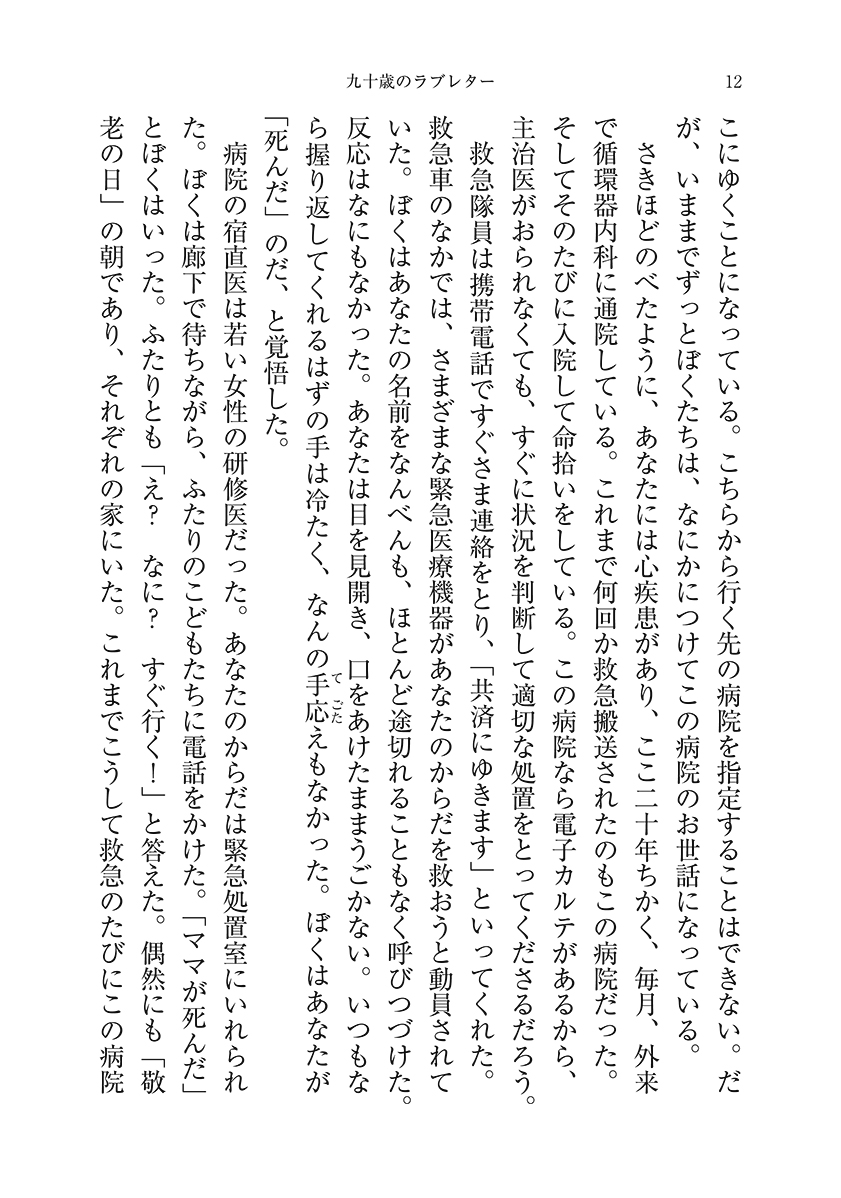 九十歳のラブレター
12
こにゆくことになっている。こちらから行く先の病院を指定することはできない。だ
が、いままでずっとぼくたちは、なにかにつけてこの病院のお世話になっている。
さきほどのべたように、あなたには心疾患があり、ここ二十年ちかく、毎月、外来
で循環器内科に通院している。これまで何回か救急搬送されたのもこの病院だった。
そしてそのたびに入院して命拾いをしている。この病院なら電子カルテがあるから、
主治医がおられなくても、すぐに状況を判断して適切な処置をとってくださるだろう。
救急隊員は携帯電話ですぐさま連絡をとり、「共済にゆきます」といってくれた。
救急車のなかでは、さまざまな緊急医療機器があなたのからだを救おうと動員されて
いた。ぼくはあなたの名前をなんべんも、ほとんど途切れることもなく呼びつづけた。
反応はなにもなかった。あなたは目を見開き、口をあけたままうごかない。いつもな
ら握り返してくれるはずの手は冷たく、なんの手応えもなかった。ぼくはあなたが
てごた
「死んだ」のだ、と覚悟した。
病院の宿直医は若い女性の研修医だった。あなたのからだは緊急処置室にいれられ
た。ぼくは廊下で待ちながら、ふたりのこどもたちに電話をかけた。「ママが死んだ」
とぼくはいった。ふたりとも「え？　なに？　すぐ行く！」と答えた。偶然にも「敬
老の日」の朝であり、それぞれの家にいた。これまでこうして救急のたびにこの病院